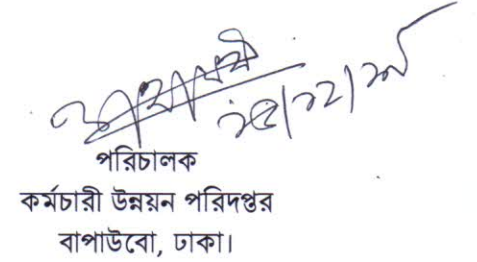 পরিচালক
কর্মচারী উন্নয়ন পরিদপ্তর
বাপাউবো, ঢাকা।